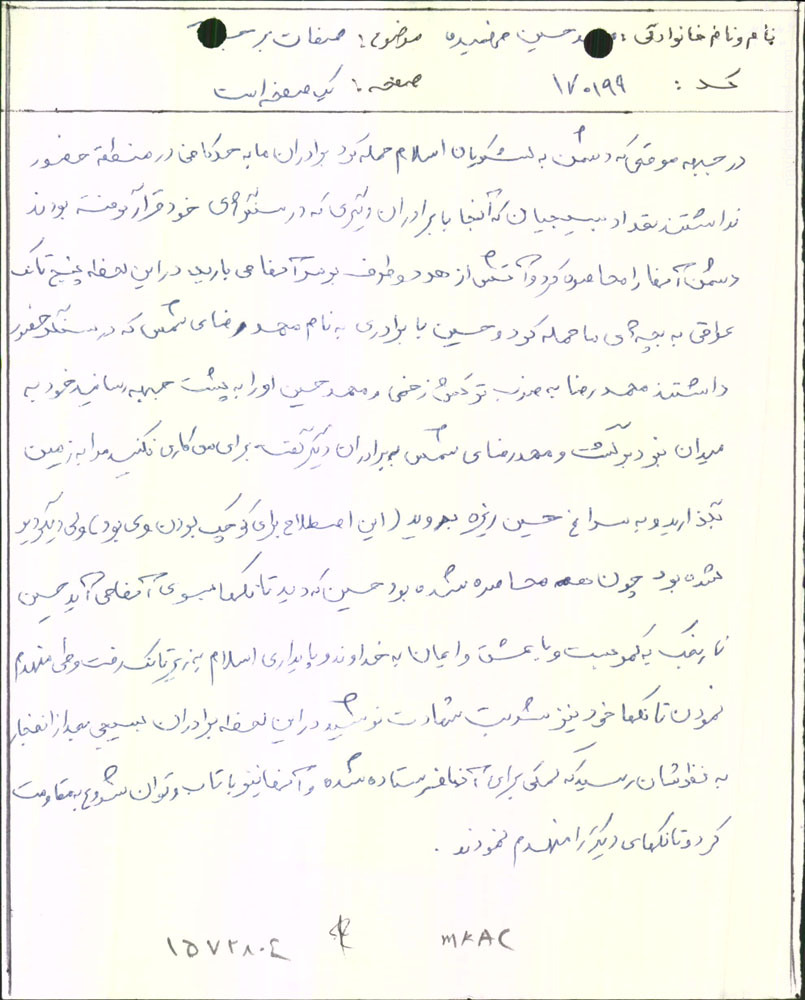 نام و نام خانوادگی: محمد حسین فهمیده موضوع: صفات برجسته
کد: ۱۷۰۱۹۹ صفحه: یک صفحه است
در جبهه موقعی که دشمن به لشکریان اسلام حمله کرد برادران ما به حد کافی در منطقه حضور
نداشتند تعداد بسیجیان که آنجا با برادران دیگری که در سنگرهای خود قرار گرفته بودند
دشمن آنها را محاصره کرد و آتش از هر دو طرف بر سر آنها می بارید در این لحظه پنج تانک
عراقی به بچه های ما حمله کرد و حسین با برادری به نام محمد رضای شمس که در سنگر حضور
داشتند محمد رضا به ضرب ترکش زخمی و محمد حسین او را به پشت جبهه رسانید خود به
میدان نبرد برگشت و محمدرضای شمس به برادران دیگر گفت برای من کاری نکنید مرا به زمین
بگذارید و به سراغ حسین ریزه بروید (این اصطلاح برای کوچک بودن وی بود) ولی دیگر دیر
شده بود چون همه محاصره شده بود حسین که دید تانکها بسوی آنها می آید حسین
نارنجک به کمر بست و با عشق و ایمان به خداوند و پایداری اسلام به زیر تانک رفت و طی منهدم
نمودن تانکها خود نیز شربت شهادت نوشید در این لحظه برادران بسیجی بعد از انفجار
به نظرشان رسید که کمکی برای آنها فرستاده شده و آنها نیز با تاب و توان شروع به مقاومت
کرد و تانکهای دیگر را منهدم نمودند.
۱۵۷۲۸۰۴ ۲۸۸۲